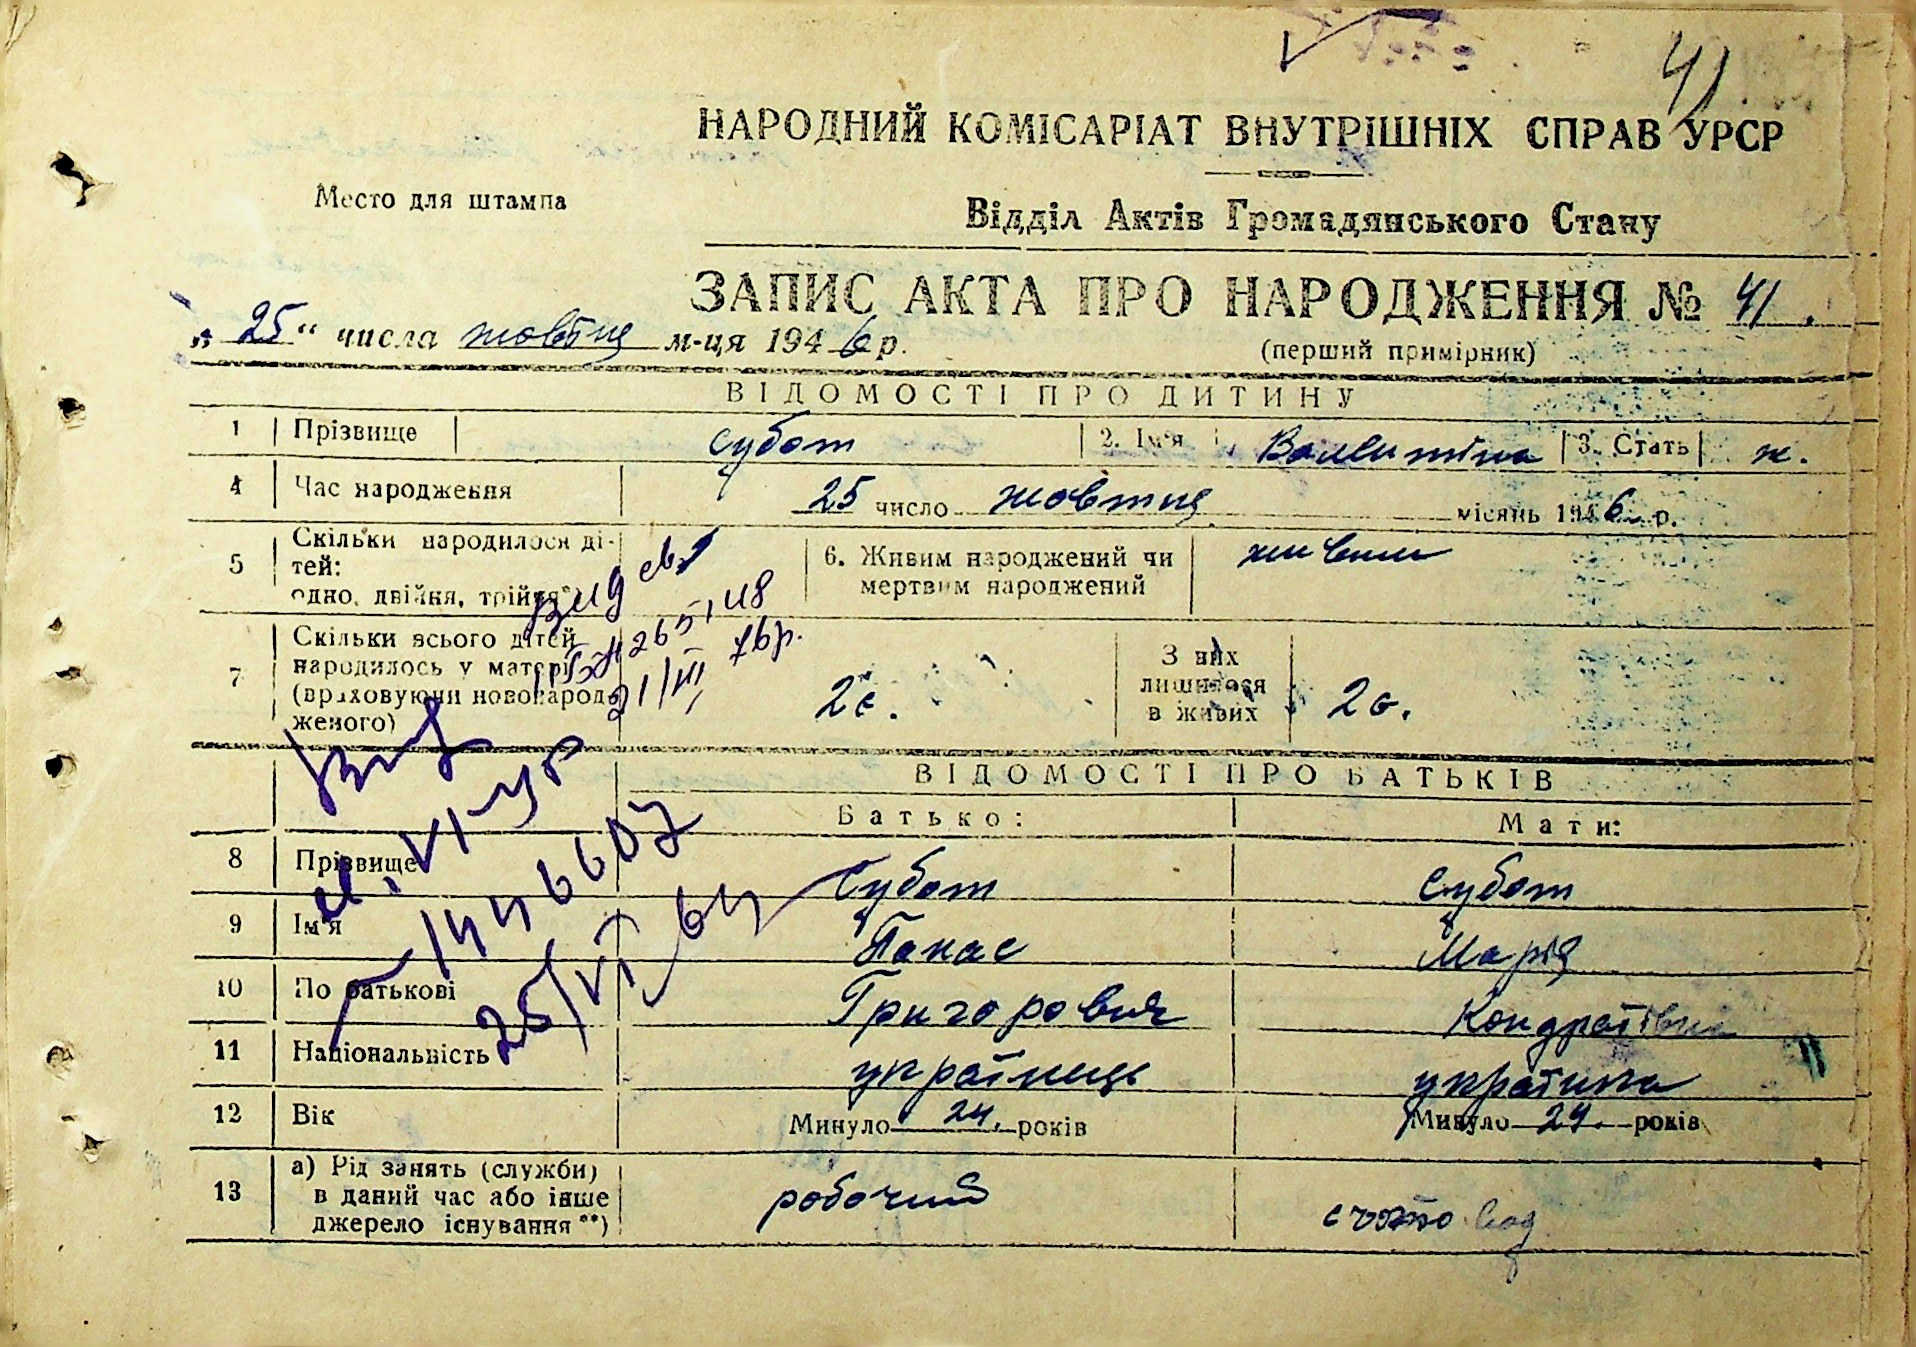 41
НАРОДНИЙ КОМІСАРІАТ ВНУТРІШНІХ СПРАВ УРСР
Место для штампа
Відділ Актів Громадянського Стану
ЗАПИС АКТА ПРО НАРОДЖЕННЯ № 41.
„ 25 “ числа жовтня м-ця 1946 р.
(перший примірник)
ВІДОМОСТІ ПРО ДИТИНУ
1 Прізвище Субот 2. Ім'я Валентина 3. Стать ж.
4 Час народження 25 число жовтня місяць 1946 р.
5 Скільки народилося ді-
тей:
одно, двійня, трійня*)
6. Живим народжений чи
мертвим народжений
живим
7 Скільки всього дітей
народилось у матері
(враховуючи новонарод-
женого)
2є.
З них
лишилося
в живих
2є.
21/III 76р.
ВІДОМОСТІ ПРО БАТЬКІВ
Батько: Мати:
8 Прізвище Субот Субот
9 Ім'я Панас Марія
10 По батькові Григорович Кондратівна
11 Національність українець українка
12 Вік Минуло 24. років Минуло 24. років
13 а) Рід занять (служби)
в даний час або інше
джерело існування**)
робочий счотовод
1446607
25/VI 64